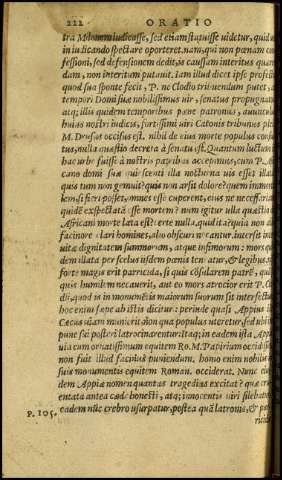 222 ORATIO
tra Milonem iudicasse, sed etiam statuisse uidetur, quid
in iudicando spectare oporteret. nam, qui non pœnam con
fessioni, sed defensionem dedit, is caussam interitus quæren
dam, non interitum putauit. iam illud dicet ipse profecto
quod sua sponte fecit, P. ne Clodio tribuendum putet, an
tempori Domi suæ nobilissimus uir, senatus propugnator
atq; illis quidem temporibus pæne patronus, auunculus
huius nostri iudicis, fortissimi uiri Catonis tribunus pleb.
M. Drusus occisus est. nihil de eius morte populus consul
tus, nulla quæstio decreta à senatu est. Quantum luctum
hac urbe fuisse à nostris patribus accepimus, cum P.
cano domi suæ quiescenti illa nocturna uis esset illata
quis tum non gemuit? quis non arsit dolore? quem immorta
lem si fieri posset, omnes esse cuperent, eius ne necessariam
quidem exspectatam esse mortem? num igitur ulla quæstio de
Africani morte lata est? certe nulla. quid ita? quia non alio
facinore clari homines, alio obscuri necantur. intersit inter
uitæ dignitatem summorum, atque infimorum: mors quidem
illata per scelus iisdem pœnis teneatur, & legibus.
forte magis erit parricida, si qui cōsularem patrē, quam si
quis humilem necauerit, aut eo mors atrocior erit P. Clo
dij, quod is in monumētis maiorum suorum sit interfectus.
hoc enim sæpe ab istis dicitur: perinde quasi Appius ille
Cæcus uiam munierit non qua populus uteretur, sed ubi im
pune sui posteri latrocinarentur. Itaq; in eadem ista Appia
uia cum ornatissimum equitem Ro. M. Papirium occidisset
non fuit illud facinus puniendum. homo enim nobilis in
suis monumentis equitem Roman. occiderat. Nunc eius
dem Appiæ nomen quantas tragœdias excitat? quæ cru
entata antea cæde honesti, atq; innocentis uiri silebatur
eadem nūc crebro usurpatur, postea quā latronis, & par
P. 105.
ricidæ